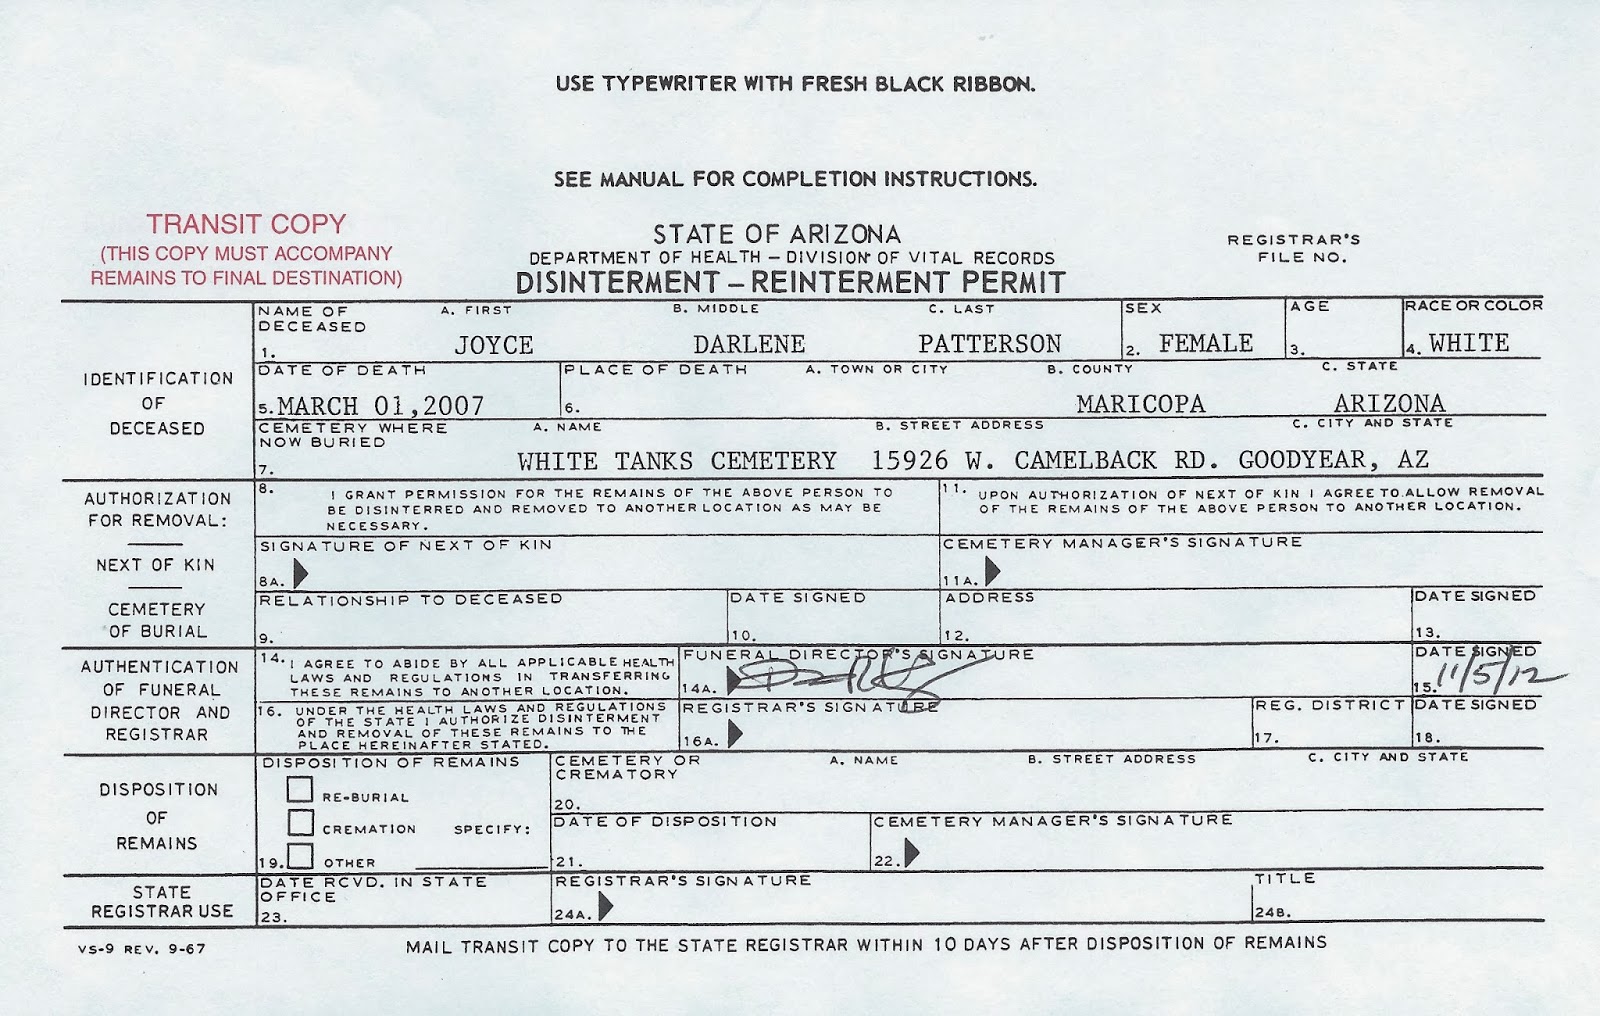 USE TYPEWRITER WITH FRESH BLACK RIBBON.
SEE MANUAL FOR COMPLETION INSTRUCTIONS.
TRANSIT COPY
(THIS COPY MUST ACCOMPANY
REMAINS TO FINAL DESTINATION)
STATE OF ARIZONA
DEPARTMENT OF HEALTH – DIVISION OF VITAL RECORDS
DISINTERMENT – REINTERMENT PERMIT
REGISTRAR'S
FILE NO.
IDENTIFICATION
OF
DECEASED
NAME OF DECEASED A. FIRST B. MIDDLE C. LAST SEX AGE RACE OR COLOR
1. JOYCE DARLENE PATTERSON 2. FEMALE 3. 4. WHITE
DATE OF DEATH PLACE OF DEATH A. TOWN OR CITY B. COUNTY C. STATE
5. MARCH 01,2007 6. MARICOPA ARIZONA
CEMETERY WHERE NOW BURIED A. NAME B. STREET ADDRESS C. CITY AND STATE
7. WHITE TANKS CEMETERY 15926 W. CAMELBACK RD. GOODYEAR, AZ
AUTHORIZATION
FOR REMOVAL:
NEXT OF KIN
CEMETERY
OF BURIAL
8. I GRANT PERMISSION FOR THE REMAINS OF THE ABOVE PERSON TO
BE DISINTERRED AND REMOVED TO ANOTHER LOCATION AS MAY BE
NECESSARY.
11. UPON AUTHORIZATION OF NEXT OF KIN I AGREE TO ALLOW REMOVAL
OF THE REMAINS OF THE ABOVE PERSON TO ANOTHER LOCATION.
SIGNATURE OF NEXT OF KIN
8A.
CEMETERY MANAGER'S SIGNATURE
11A.
RELATIONSHIP TO DECEASED DATE SIGNED ADDRESS DATE SIGNED
9. 10. 12. 13.
AUTHENTICATION
OF FUNERAL
DIRECTOR AND
REGISTRAR
14. I AGREE TO ABIDE BY ALL APPLICABLE HEALTH
LAWS AND REGULATIONS IN TRANSFERRING
THESE REMAINS TO ANOTHER LOCATION.
FUNERAL DIRECTOR'S SIGNATURE
14A.
DATE SIGNED
15. 11/5/12
16. UNDER THE HEALTH LAWS AND REGULATIONS
OF THE STATE I AUTHORIZE DISINTERMENT
AND REMOVAL OF THESE REMAINS TO THE
PLACE HEREINAFTER STATED.
REGISTRAR'S SIGNATURE REG. DISTRICT DATE SIGNED
16A. 17. 18.
DISPOSITION
OF
REMAINS
DISPOSITION OF REMAINS
RE-BURIAL
CREMATION SPECIFY:
19. OTHER
CEMETERY OR CREMATORY A. NAME B. STREET ADDRESS C. CITY AND STATE
20.
DATE OF DISPOSITION CEMETERY MANAGER'S SIGNATURE
21. 22.
STATE
REGISTRAR USE
DATE RCVD. IN STATE OFFICE
23.
REGISTRAR'S SIGNATURE TITLE
24A. 24B.
VS-9 REV. 9-67
MAIL TRANSIT COPY TO THE STATE REGISTRAR WITHIN 10 DAYS AFTER DISPOSITION OF REMAINS